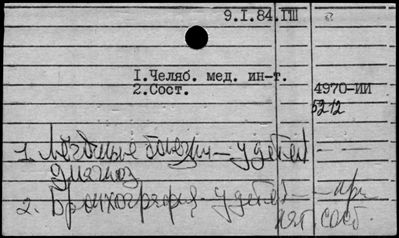 9.I.84.ГШ
I.Челяб. мед. ин-т.
2.Сост.
4970-ИИ
5212
1. Легочные болезни — у детей
Диагноз
2. Бронхография — у детей — при